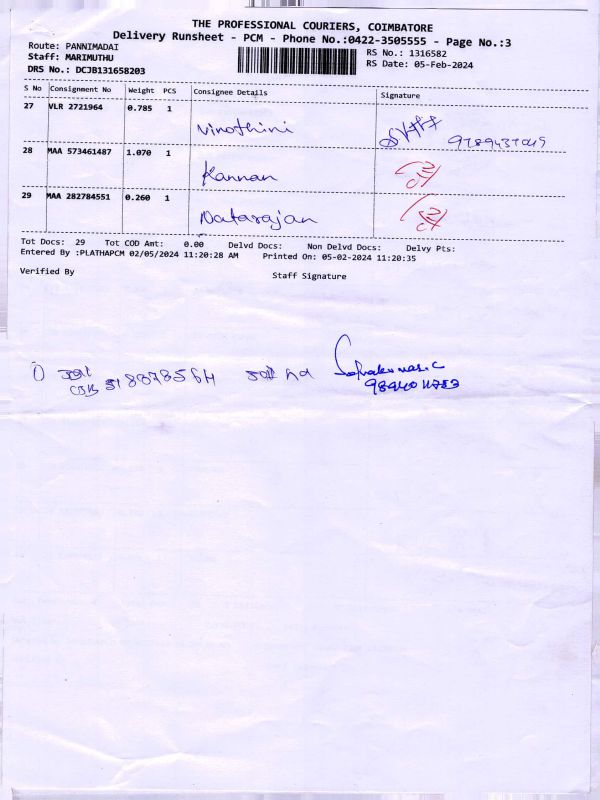 THE PROFESSIONAL COURIERS, COIMBATORE
Delivery Runsheet - PCM - Phone No.:0422-3505555 - Page No.:3
Route: PANNIMADAI
RS No.: 1316582
Staff: MARIMUTHU
RS Date: 05-Feb-2024
DRS No.: DCJB131658203
S No Consignment No Weight PCS Consignee Details Signature
27 VLR 2721964 0.785 1 Vinothini
28 MAA 573461487 1.070 1 Kannan
29 MAA 282784551 0.260 1 Natarajan
Tot Docs: 29 Tot COD Amt: 0.00 Delvd Docs: Non Delvd Docs: Delvy Pts:
Entered By :PLATHAPCM 02/05/2024 11:20:28 AM Printed On: 05-02-2024 11:20:35
Verified By
Staff Signature